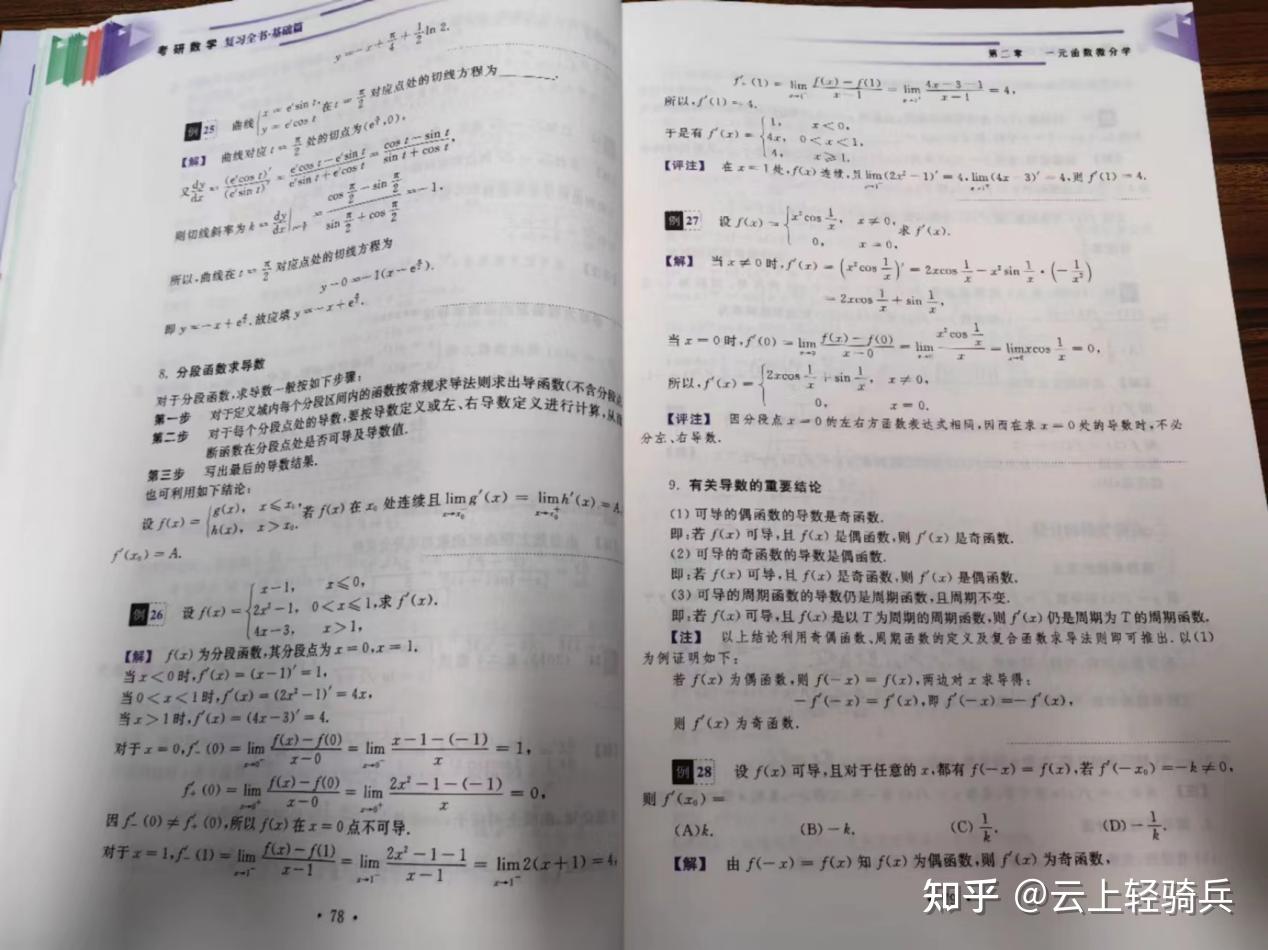 考研数学 复习全书·基础篇
y=-x+π/4+1/2 ln 2.
例25 曲线{x=e^t sin t, y=e^t cos t 在 t=π/2 对应点处的切线方程为______.
【解】 曲线对应 t=π/2 处的切点为(e^{π/2},0),
又 dy/dx=(e^t cos t)′/(e^t sin t)′=(e^t cos t-e^t sin t)/(e^t sin t+e^t cos t)=(cos t-sin t)/(sin t+cos t),
则切线斜率为 k=dy/dx|_{t=π/2}=(cos π/2-sin π/2)/(sin π/2+cos π/2)=-1,
所以,曲线在 t=π/2 对应点处的切线方程为
y-0=-1(x-e^{π/2}).
即 y=-x+e^{π/2}.故应填 y=-x+e^{π/2}.
8. 分段函数求导数
对于分段函数,求导数一般按如下步骤:
第一步 对于定义域内每个分段区间内的函数按常规求导法则求出导函数(不含分段点
第二步 对于每个分段点处的导数,要按导数定义或左、右导数定义进行计算,从而
断函数在分段点处是否可导及导数值.
第三步 写出最后的导数结果.
也可利用如下结论:
设 f(x)={g(x), x≤x₀, h(x), x>x₀. 若 f(x) 在 x₀ 处连续且 lim_{x→x₀⁻} g′(x)=lim_{x→x₀⁺} h′(x)=A
f′(x₀)=A.
例26 设 f(x)={x-1, x≤0, 2x²-1, 0<x≤1, 4x-3, x>1, 求 f′(x).
【解】 f(x) 为分段函数,其分段点为 x=0,x=1.
当 x<0 时,f′(x)=(x-1)′=1,
当 0<x<1 时,f′(x)=(2x²-1)′=4x,
当 x>1 时,f′(x)=(4x-3)′=4.
对于 x=0,f′₋(0)=lim_{x→0⁻} (f(x)-f(0))/(x-0)=lim_{x→0⁻} (x-1-(-1))/x=1,
f′₊(0)=lim_{x→0⁺} (f(x)-f(0))/(x-0)=lim_{x→0⁺} (2x²-1-(-1))/x=0,
因 f′₋(0)≠f′₊(0),所以 f(x) 在 x=0 点不可导.
对于 x=1,f′₋(1)=lim_{x→1⁻} (f(x)-f(1))/(x-1)=lim_{x→1⁻} (2x²-1-1)/(x-1)=lim_{x→1⁻} 2(x+1)=4,
· 78 ·
第二章 一元函数微分学
f′₊(1)=lim_{x→1⁺} (f(x)-f(1))/(x-1)=lim_{x→1⁺} (4x-3-1)/(x-1)=4,
所以,f′(1)=4.
于是有 f′(x)={1, x<0, 4x, 0<x<1, 4, x≥1.
【评注】 在 x=1 处,f(x) 连续,且 lim_{x→1⁻}(2x²-1)′=4,lim_{x→1⁺}(4x-3)′=4,则 f′(1)=4.
例27 设 f(x)={x²cos 1/x, x≠0, 0, x=0, 求 f′(x).
【解】 当 x≠0 时,f′(x)=(x²cos 1/x)′=2xcos 1/x-x²sin 1/x·(-1/x²)
=2xcos 1/x+sin 1/x,
当 x=0 时,f′(0)=lim_{x→0} (f(x)-f(0))/(x-0)=lim_{x→0} (x²cos 1/x)/x=lim_{x→0} xcos 1/x=0,
所以,f′(x)={2xcos 1/x+sin 1/x, x≠0, 0, x=0.
【评注】 因分段点 x=0 的左右方函数表达式相同,因而在求 x=0 处的导数时,不必
分左、右导数.
9. 有关导数的重要结论
(1) 可导的偶函数的导数是奇函数.
即:若 f(x) 可导,且 f(x) 是偶函数,则 f′(x) 是奇函数.
(2) 可导的奇函数的导数是偶函数.
即:若 f(x) 可导,且 f(x) 是奇函数,则 f′(x) 是偶函数.
(3) 可导的周期函数的导数仍是周期函数,且周期不变.
即:若 f(x) 可导,且 f(x) 是以 T 为周期的周期函数,则 f′(x) 仍是周期为 T 的周期函数.
【注】 以上结论利用奇偶函数、周期函数的定义及复合函数求导法则即可推出.以(1)
为例证明如下:
若 f(x) 为偶函数,则 f(-x)=f(x),两边对 x 求导得:
-f′(-x)=f′(x),即 f′(-x)=-f′(x),
则 f′(x) 为奇函数.
例28 设 f(x) 可导,且对于任意的 x,都有 f(-x)=f(x),若 f′(-x₀)=-k≠0,
则 f′(x₀)=
(A)k. (B)-k. (C)1/k. (D)-1/k.
【解】 由 f(-x)=f(x) 知 f(x) 为偶函数,则 f′(x) 为奇函数,
知乎 @云上轻骑兵